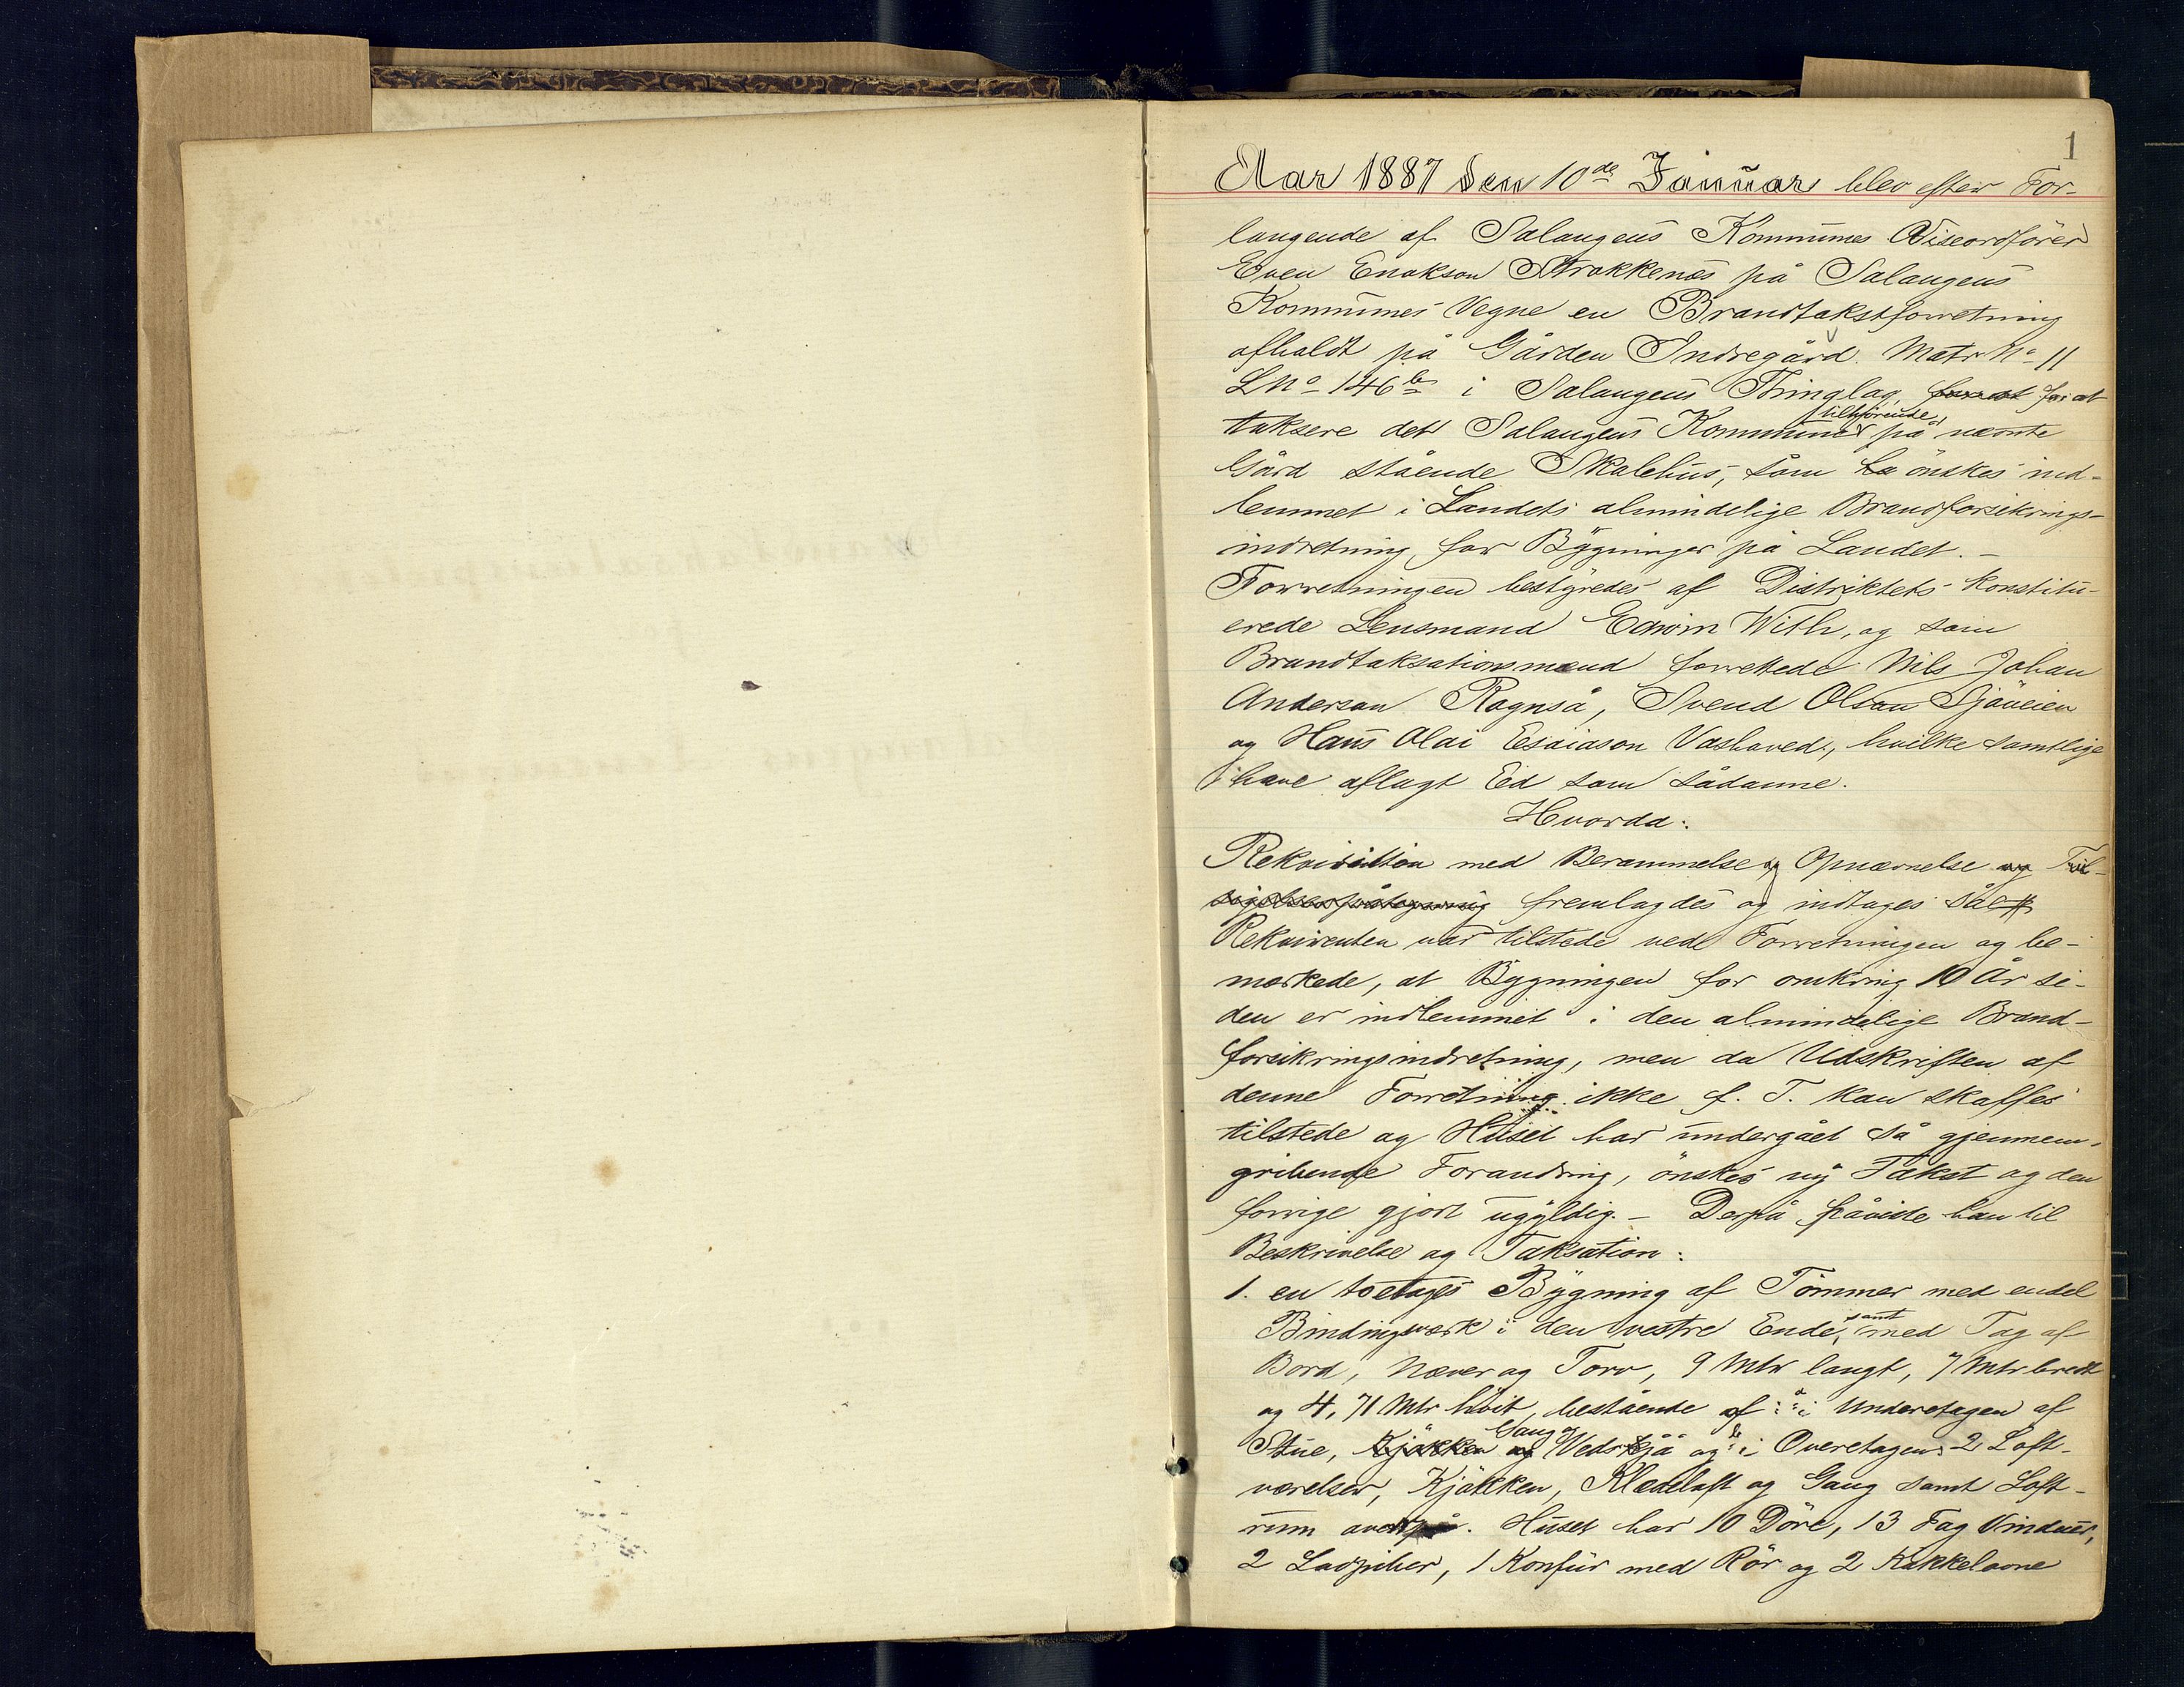 1
Aar 1887 den 10de Januar blev efter For-
langende af Salangens Kommunes Viseordfører
Even Enokson Strokkenæs på Salangens
Kommunes Vegne en Brandtakstforretning
afholdt på Gården Indregård Matr No 11
LNo 146b i Salangens Thinglag, for at
taksere det Salangens Kommune tilhørende, på nævnte
Gård stående Skolehus, som ønskes ind-
lemmet i Landets almindelige Brandforsikrings-
indretning for Bygninger på Landet. –
Forretningen bestyredes af Distriktets konstitu-
erede Lensmand Edwin With, og som
Brandtaksationsmænd forrettede Nils Johan
Anderson Rognså, Svend Olson Sjøveien
og Hans Olai Esaiason Vashoved, hvilke samtlige
have aflagt Ed som sådanne.
Hvorda:
Rekvisition med Berammelse og Opnævnelse
fremlagdes og indtages
Rekvirenten var tilstede ved Forretningen og be-
mærkede, at Bygningen for omkring 10 År si-
den er indlemmet i den almindelige Brand-
forsikringsindretning, men da Udskriften af
denne Forretning ikke f. T. kan skaffes
tilstede og Huset har undergået så gjennem-
gribende Forandring, ønskes ny Takst og den
forrige gjort ugyldig. – Derpå påviste han til
Beskrivelse og Taksation:
1. en toetages Bygning af Tømmer med endel
Bindingsværk i den vestre Ende, samt med Tag af
Bord, Næver og Torv, 9 Mtr langt, 7 Mtr bredt
og 4,71 Mtr høit, bestående af: a: i Underetagen af
Stue, Gang og Vedskjå og b: i Overetagen 2 Loft-
værelser, Kjøkken, Klædeloft og Gang samt Loft-
rum over. Huset har 10 Døre, 13 Fag Vinduer,
2 Ladpiber, 1 Komfur med Rør og 2 Kakkelovne